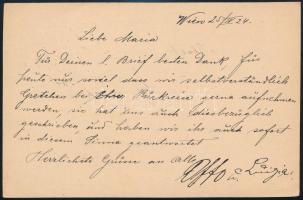 Wien 25/II 24.
Liebe Maria
Für Deinen l. Brief besten Dank für
heute nur soviel dass wir selbstverständlich
Gretchen bei Rückreise gerne aufnehmen
werden, sie hat uns auch diesbezüglich
geschrieben, und haben wir ihr auch sofort
in diesem Sinne geantwortet
Herzlichste Grüsse an alle
Otto u. Luizie